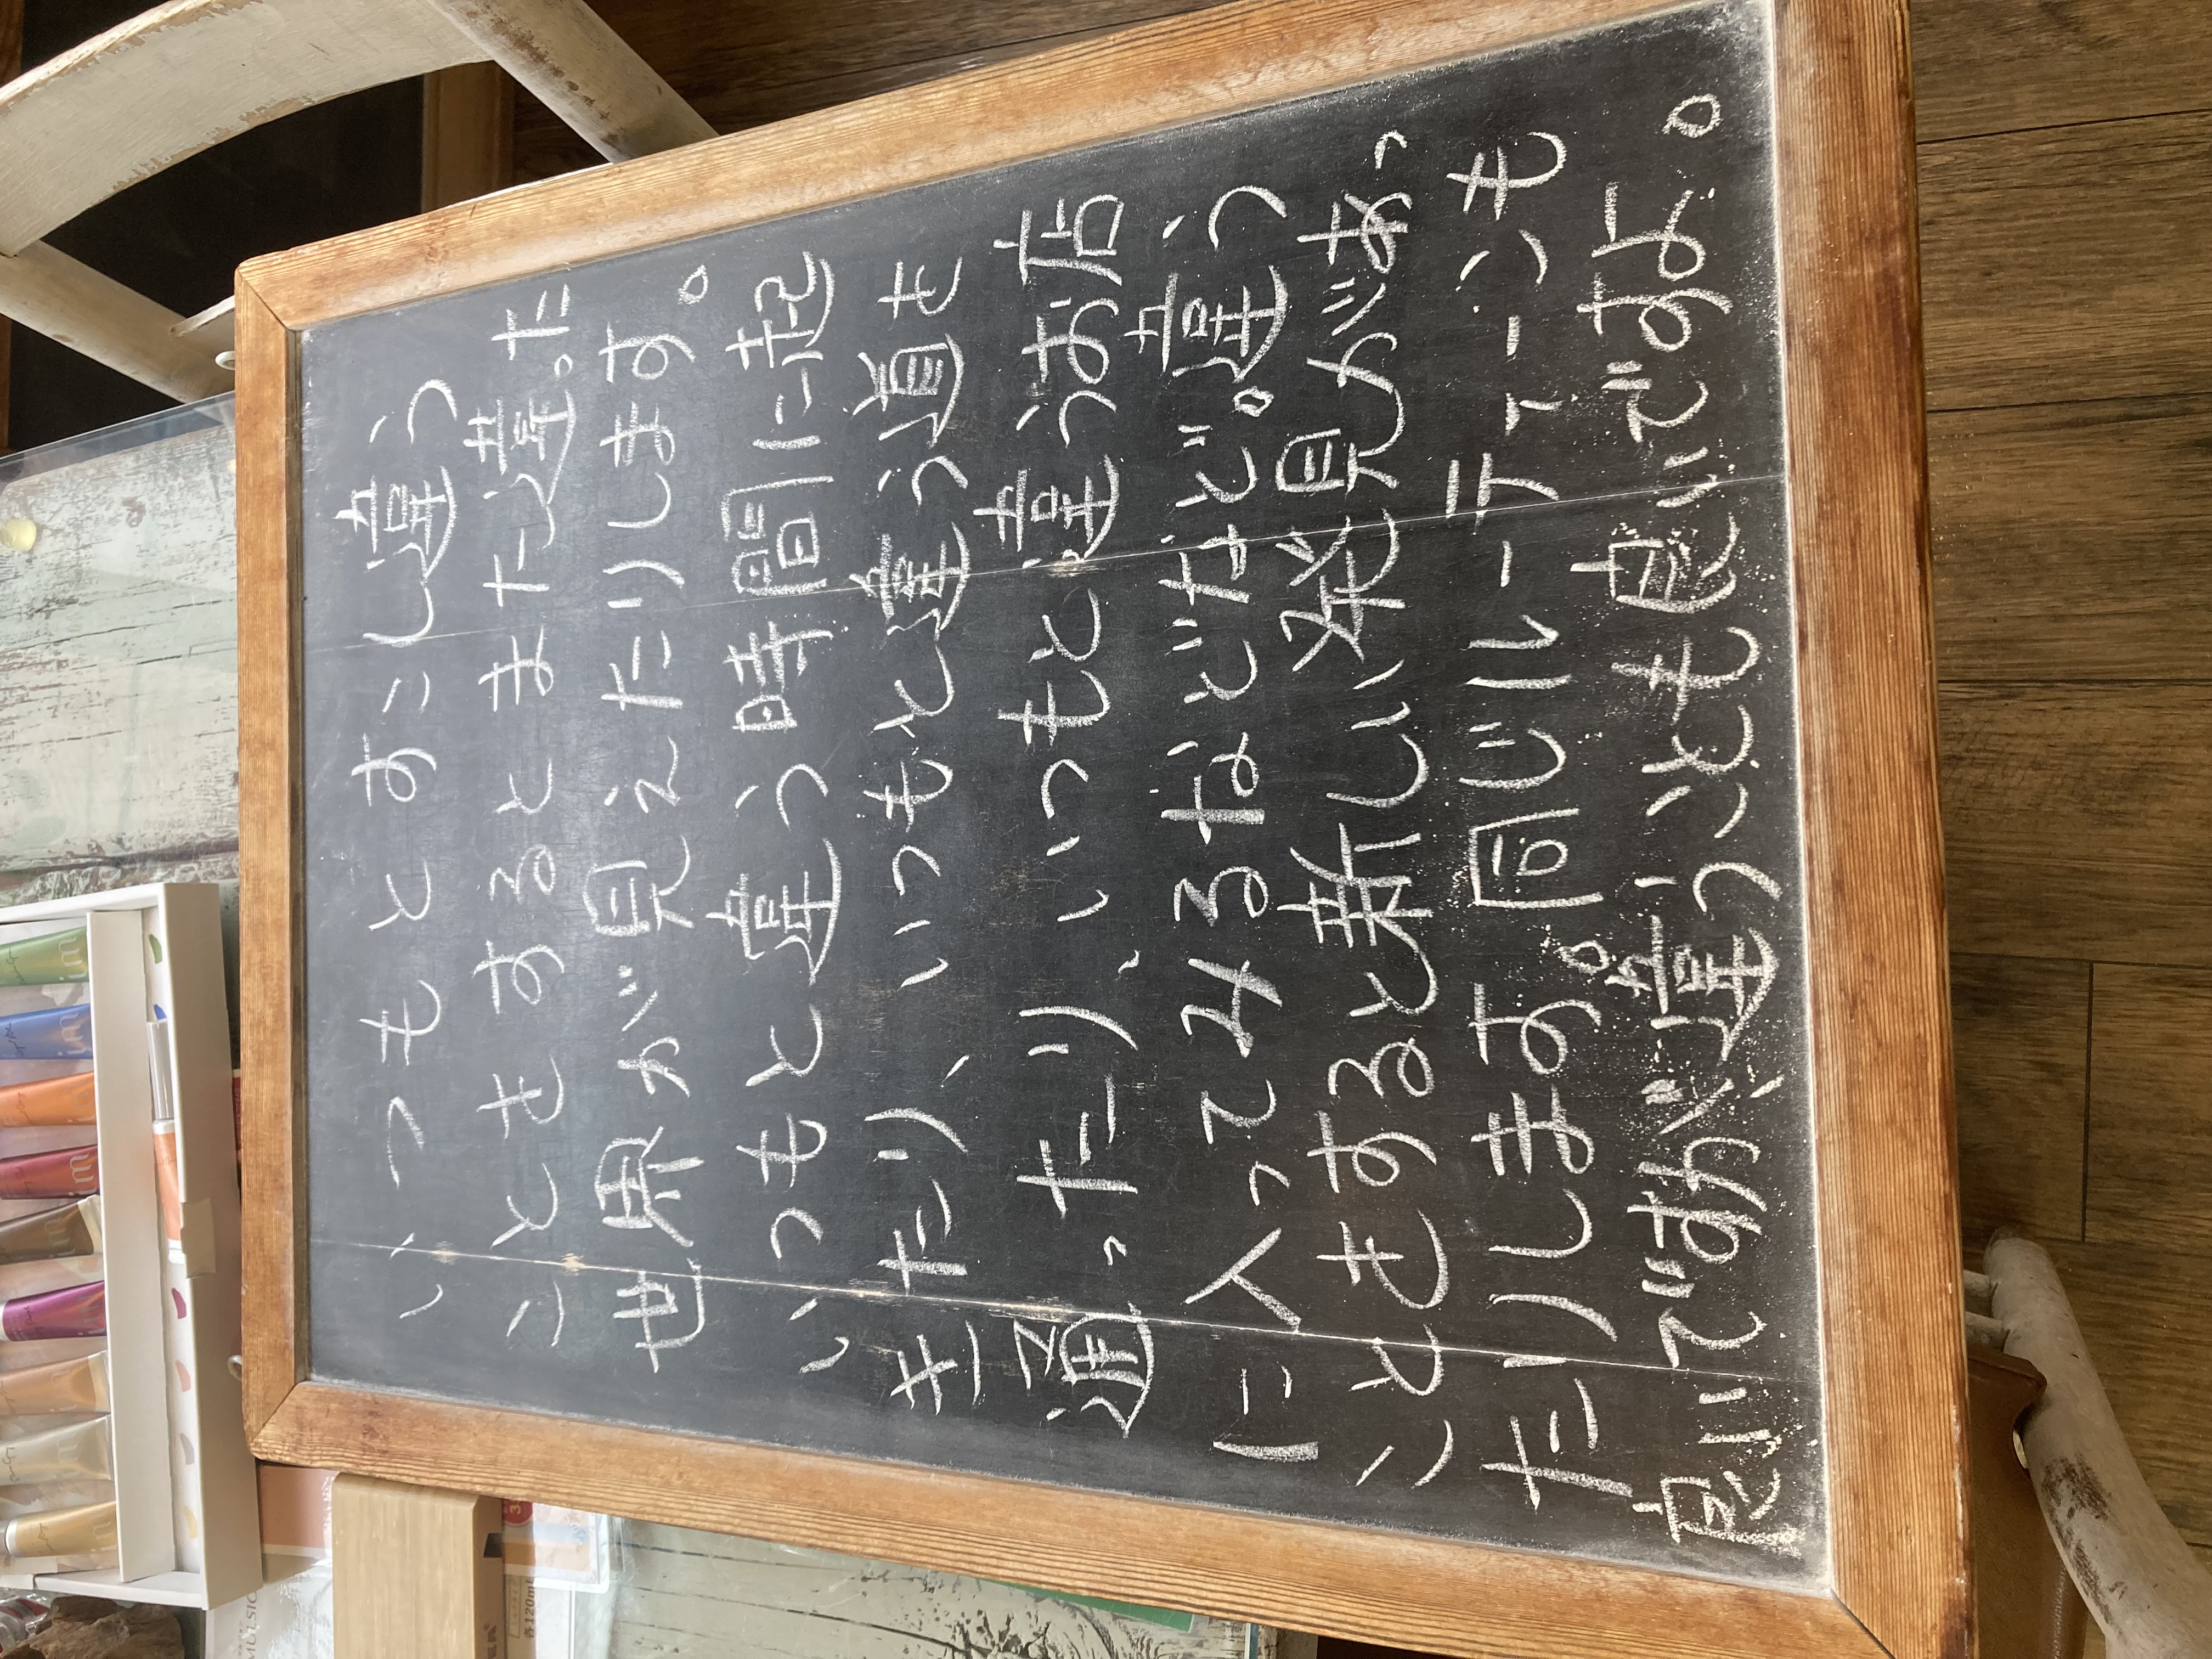 いつもとすこし違う
ことをするとまた違った
世界が見えたりします。
いつもと違う時間に起
きたり、いつもと違う道を
通ったり、いつもと違うお店
に入ってみるなどなど。違う
ことをすると新しい発見があっ
たりします。同じルーティーンも
良いですが、違うことも良いですよ。
各120ml